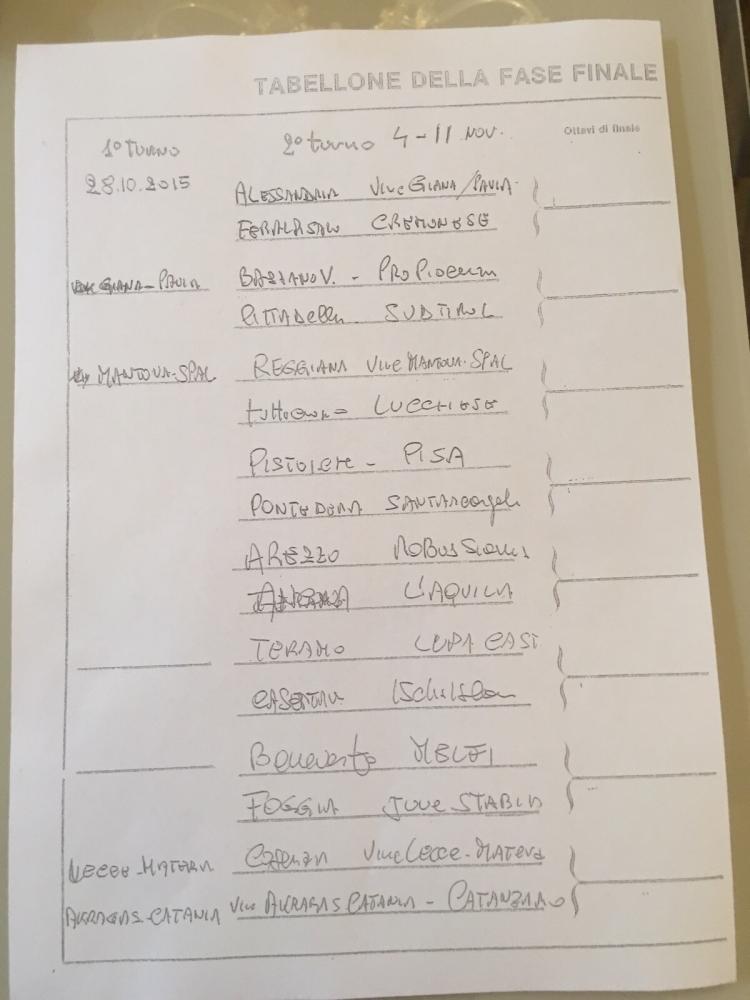 TABELLONE DELLA FASE FINALE
1° TURNO 2° turno 4-11 NOV. Ottavi di finale
28.10.2015 ALESSANDRIA VINC GIANA/PAVIA
FERALPISALO CREMONESE
GIANA-PAVIA BASSANO V. - PROPIACENZA
CITTADELLA SUDTIROL
MANTOVA-SPAL REGGIANA VINC MANTOVA-SPAL
tuttocuoio LUCCHESE
PISTOIESE - PISA
PONTEDERA SANTARCANGELO
AREZZO ROBUR SIENA
ANCONA L'AQUILA
TERAMO LUPA CAST
CASERTANA
Benevento MELFI
FOGGIA JUVE STABIA
LECCE-MATERA Cosenza VINC Lecce-MATERA
AKRAGAS-CATANIA VINC AKRAGAS CATANIA - CATANZARO